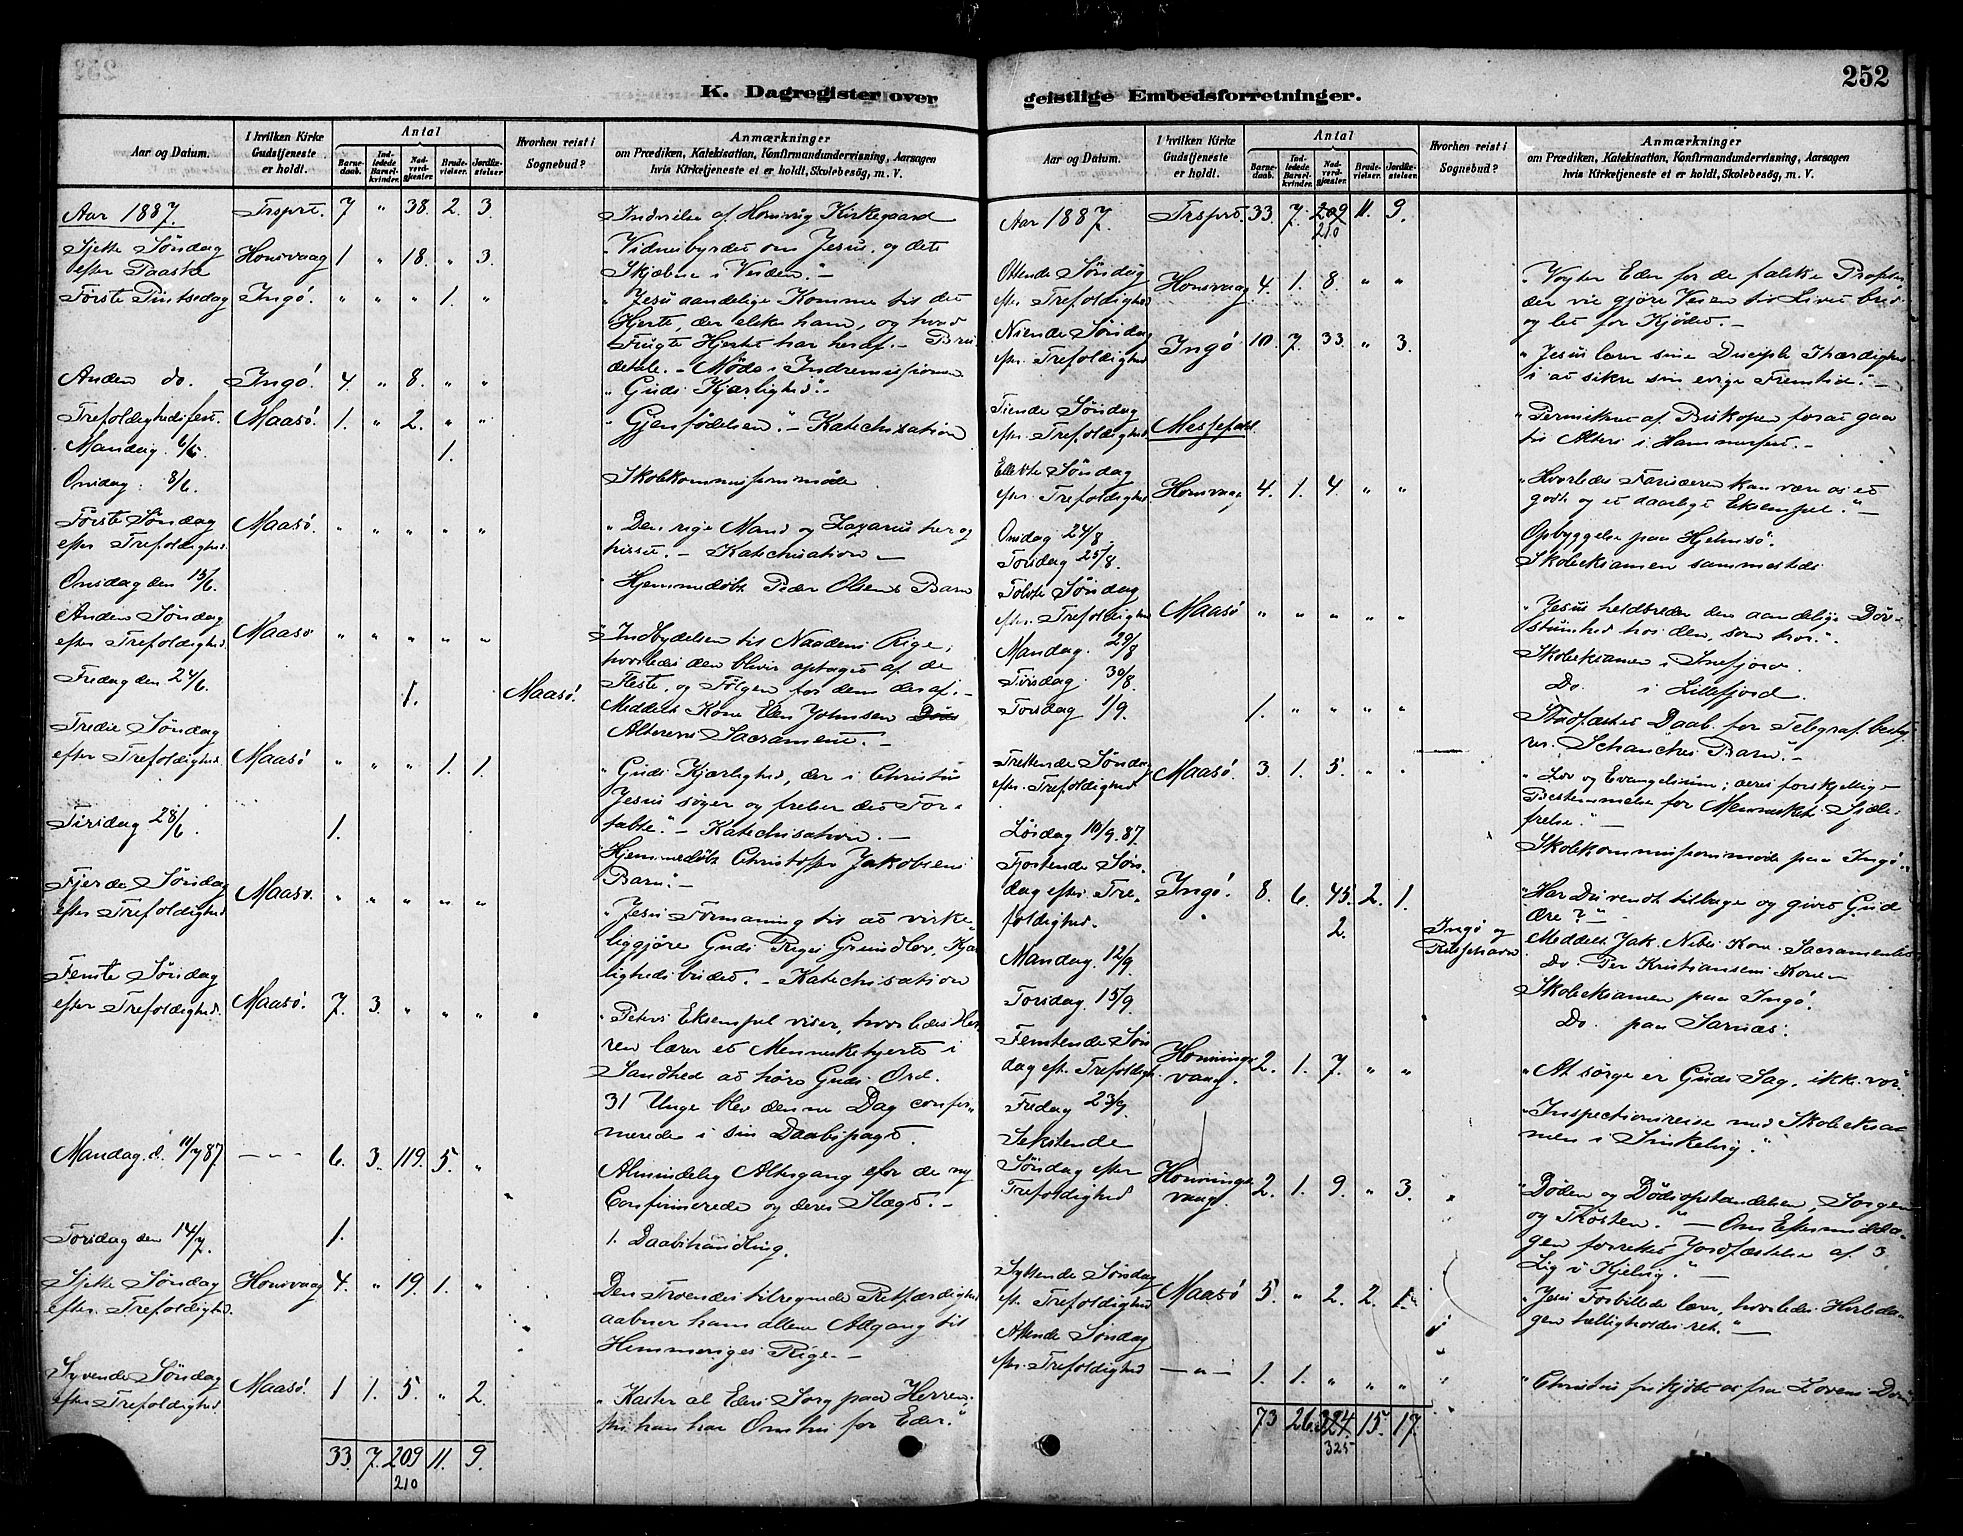 252
K. Dagregister over geistlige Embedsforretninger.
Aar og Datum.
I hvilken Kirke Gudstjeneste er holdt.
Antal
Barnedaab.
Indledede Barselkvinder.
Nadverdgjæster.
Brudevielser.
Jordfæstelser
Hvorhen reist i Sognebud?
Anmærkninger
om Prædiken, Katekisation, Konfirmandundervisning, Aarsagen
hvis Kirketjeneste ei er holdt, Skolebesög, m. V.
Aar 1887. Trsprt. 7 " 38. 2. 3. Indvielse af Honsvaag Kirkegaard
Sjette Søndag efter Paaske Honsvaag 1 " 18. " 3. Vidnesbyrdet om Jesus, og dets
Skjæbne i Verden."-
Første Pintsedag Ingö. " " " 1. " "Jesu aandelige Komme til det
Hjerte, der elsker ham, og hvad
Frugt Hjertet har heraf.- Bru
detale.- Möde i Indremissionen
Anden do. Ingö. 4. " 8. " " "Guds Kjærlighed"-
Trefoldighedsfest Maasö. 1. " 2. " " "Gjenfødelsen."- Katechisation
Mandag 6/6 1.
Onsdag 8/6. Skolekommissionsmøde
Første Søndag efter Trefoldighed. Maasö. " " " " " "Den rige Mand og Lazarus her og
hisset.- Katechisation-
Onsdag den 15/6 Hjemmedøbt Peder Olsens Barn
Anden Søndag efter Trefoldighed. Maasö " " " " " "Indbydelsen til Naadens Rige;
hvorledes den bliver optaget af de
Fleste, og Følgen for dem deraf.-
Fredag den 24/6. 1. Maasö. Meddelt Kone Elen Johnsen
Alterens Sacramente.-
Tredie Søndag efter Trefoldighed. Maasö " " " 1. 1. "Guds Kjærlighed, der i Christus
Jesus søger og frelser det For-
tabte."- Katechisation.-
Tirsdag 28/6. 1. Hjemmedøbt Christoffer Jakobsens
Barn.-
Fjerde Søndag efter Trefoldighed Maasö. " " " " " "Jesu Formaning til at virke-
liggjøre Guds Riges Grundlov, Kjær
lighedsbudet.- Katechisation
Femte Søndag efter Trefoldighed. Maasö. 7. 3. " " " "Peters Eksempel viser, hvorledes Her-
ren lærer et Menneskehjerte i
Sandhed at høre Guds Ord.
31 Unge blev denne Dag confir-
merede i sin Daabspagt.
Mandag d. 11/7 87 -"- 6. 3. 119. 5. " Almindelig Altergang for de ny
Confirmerede og deres Slægt.-
Torsdag den 14/7. 1. 1. Daabshandling.
Sjette Søndag efter Trefoldighed. Honsvaag 4. " 19. 1. " Den Troendes tilregnede Retfærdighed
aabner ham allene Adgang til
Himmeriges Rige.-
Syvende Søndag efter Trefoldighed. Maasö. 1 1. 5. " 2. "Kaster al Eders Sorg paa Herren;
thi han har Omhu for Eder."
33. 7. 209 11. 9.
210
Aar og Datum.
I hvilken Kirke Gudstjeneste er holdt.
Antal
Barnedaab.
Indledede Barselkvinder.
Nadverdgjæster.
Brudevielser.
Jordfæstelser.
Hvorhen reist i Sognebud?
Anmærkninger
om Prædiken, Katekisation, Konfirmandundervisning, Aarsagen
hvis Kirketjeneste ei er holdt, Skolebesög, m. V.
Aar 1887. Trsprt. 33. 7. 209 11. 9.
210
Ottende Søndag eft. Trefoldighed Honsvaag 4. 1. 8. " " "Vogter Eder for de falske Profeter
der vil gjøre Veien til Livet bred
og let for Kjødet.-
Niende Søndag eft. Trefoldighed Ingö. 10. 7. 33. " 3. "Jesus lærer sine Disciple Ihærdighed
i at sikre sin evige Fremtid."-
Tiende Søndag efter Trefoldighed Messefald. "Permitteret af Biskopen forat gaa
til Alters i Hammerfest.-
Ellevte Søndag eft. Trefoldighed Honsvaag 4. 1. 4. " " "Hvorledes Farisæeren kan være os et
godt og et daarligt Eksempel."-
Onsdag 24/8. Opbyggelse paa Hjelmsö.
Torsdag 25/8. Skoleeksamen sammesteds
Tolvte Søndag eft. Trefoldighed Maasö " " " " " "Jesus helbreder den aandelige Døv-
stumhed hos den, som tror."
Mandag. 29/8 Skoleeksamen i Snefjord.
Tirsdag. 30/8. Do. i Lillefjord.
Torsdag 1/9. 1. " " " " Stadfæstet Daab for Telegrafbesty
rer Schanches Barn.-
Trettende Søndag efter Trefoldighed Maasö. 3. 1. 5. " " "Lov og Evangelium; deres forskjellige
Bestemmelse for Menneskets Sjæle-
frelse."-
Lørsdag 10/9. 87. Skolekommissionsmøde paa Ingö.
Fjortende Søn-
dag efter Tre-
foldighed. Ingö. 8. 6. 45. 2. 1. "Har Du vendt tilbage og givet Gud
Ære?"-
2. Ingö og
Meddelt Jak. Nibes Kone Sacramentet
Mandag. 12/9 Do. Per Kristiansens Kone-
Torsdag. 15/9 Skoleeksamen paa Ingö.
Do. paa Sarnæs.
Femtende Søn
dag eft. Trefoldigh. Honningsvaag. 2. 1. 7. " " "At sørge er Guds Sag, ikke vor."
Fredag 23/9. "Inspectionsreise med Skoleeksa-
men i
Sekstende
Søndag efter
Trefoldighed Honningsvaag. 2. 1. 9. " 3. "Døden og Dødsopstandelsen, Sorgen
og Trøsten."- Om Eftermidda-
gen forrettet Jordfæstelse af 3
Lig i Kjelvig."-
Syttende Søndag eft. Trefoldighed Maasö 5. " 2. 2. 1. "Jesu Forbillede lærer, hvorledes Hviledagen helligholdes ret."-
Attende Søndag
eft. Trefoldighed -"- 1. 1. " " " "Christus frikjøbte os fra Lovens Dom
73 26. 324. 15. 17.
325